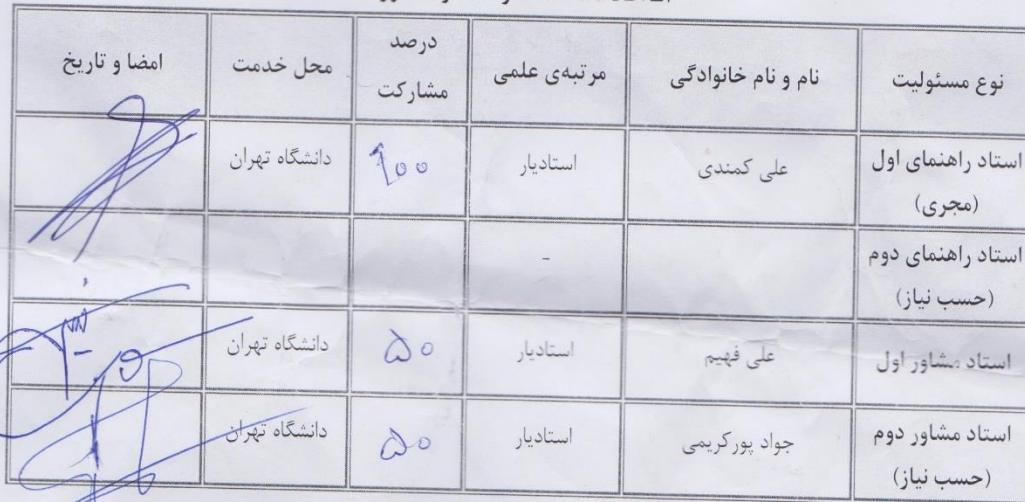 نوع مسئولیت نام و نام خانوادگی مرتبه‌ی علمی درصد مشارکت محل خدمت امضا و تاریخ
استاد راهنمای اول (مجری) علی کمندی استادیار ۱۰۰ دانشگاه تهران
استاد راهنمای دوم (حسب نیاز) -
استاد مشاور اول علی فهیم استادیار ۵۰ دانشگاه تهران
استاد مشاور دوم (حسب نیاز) جواد پورکریمی استادیار ۵۰ دانشگاه تهران